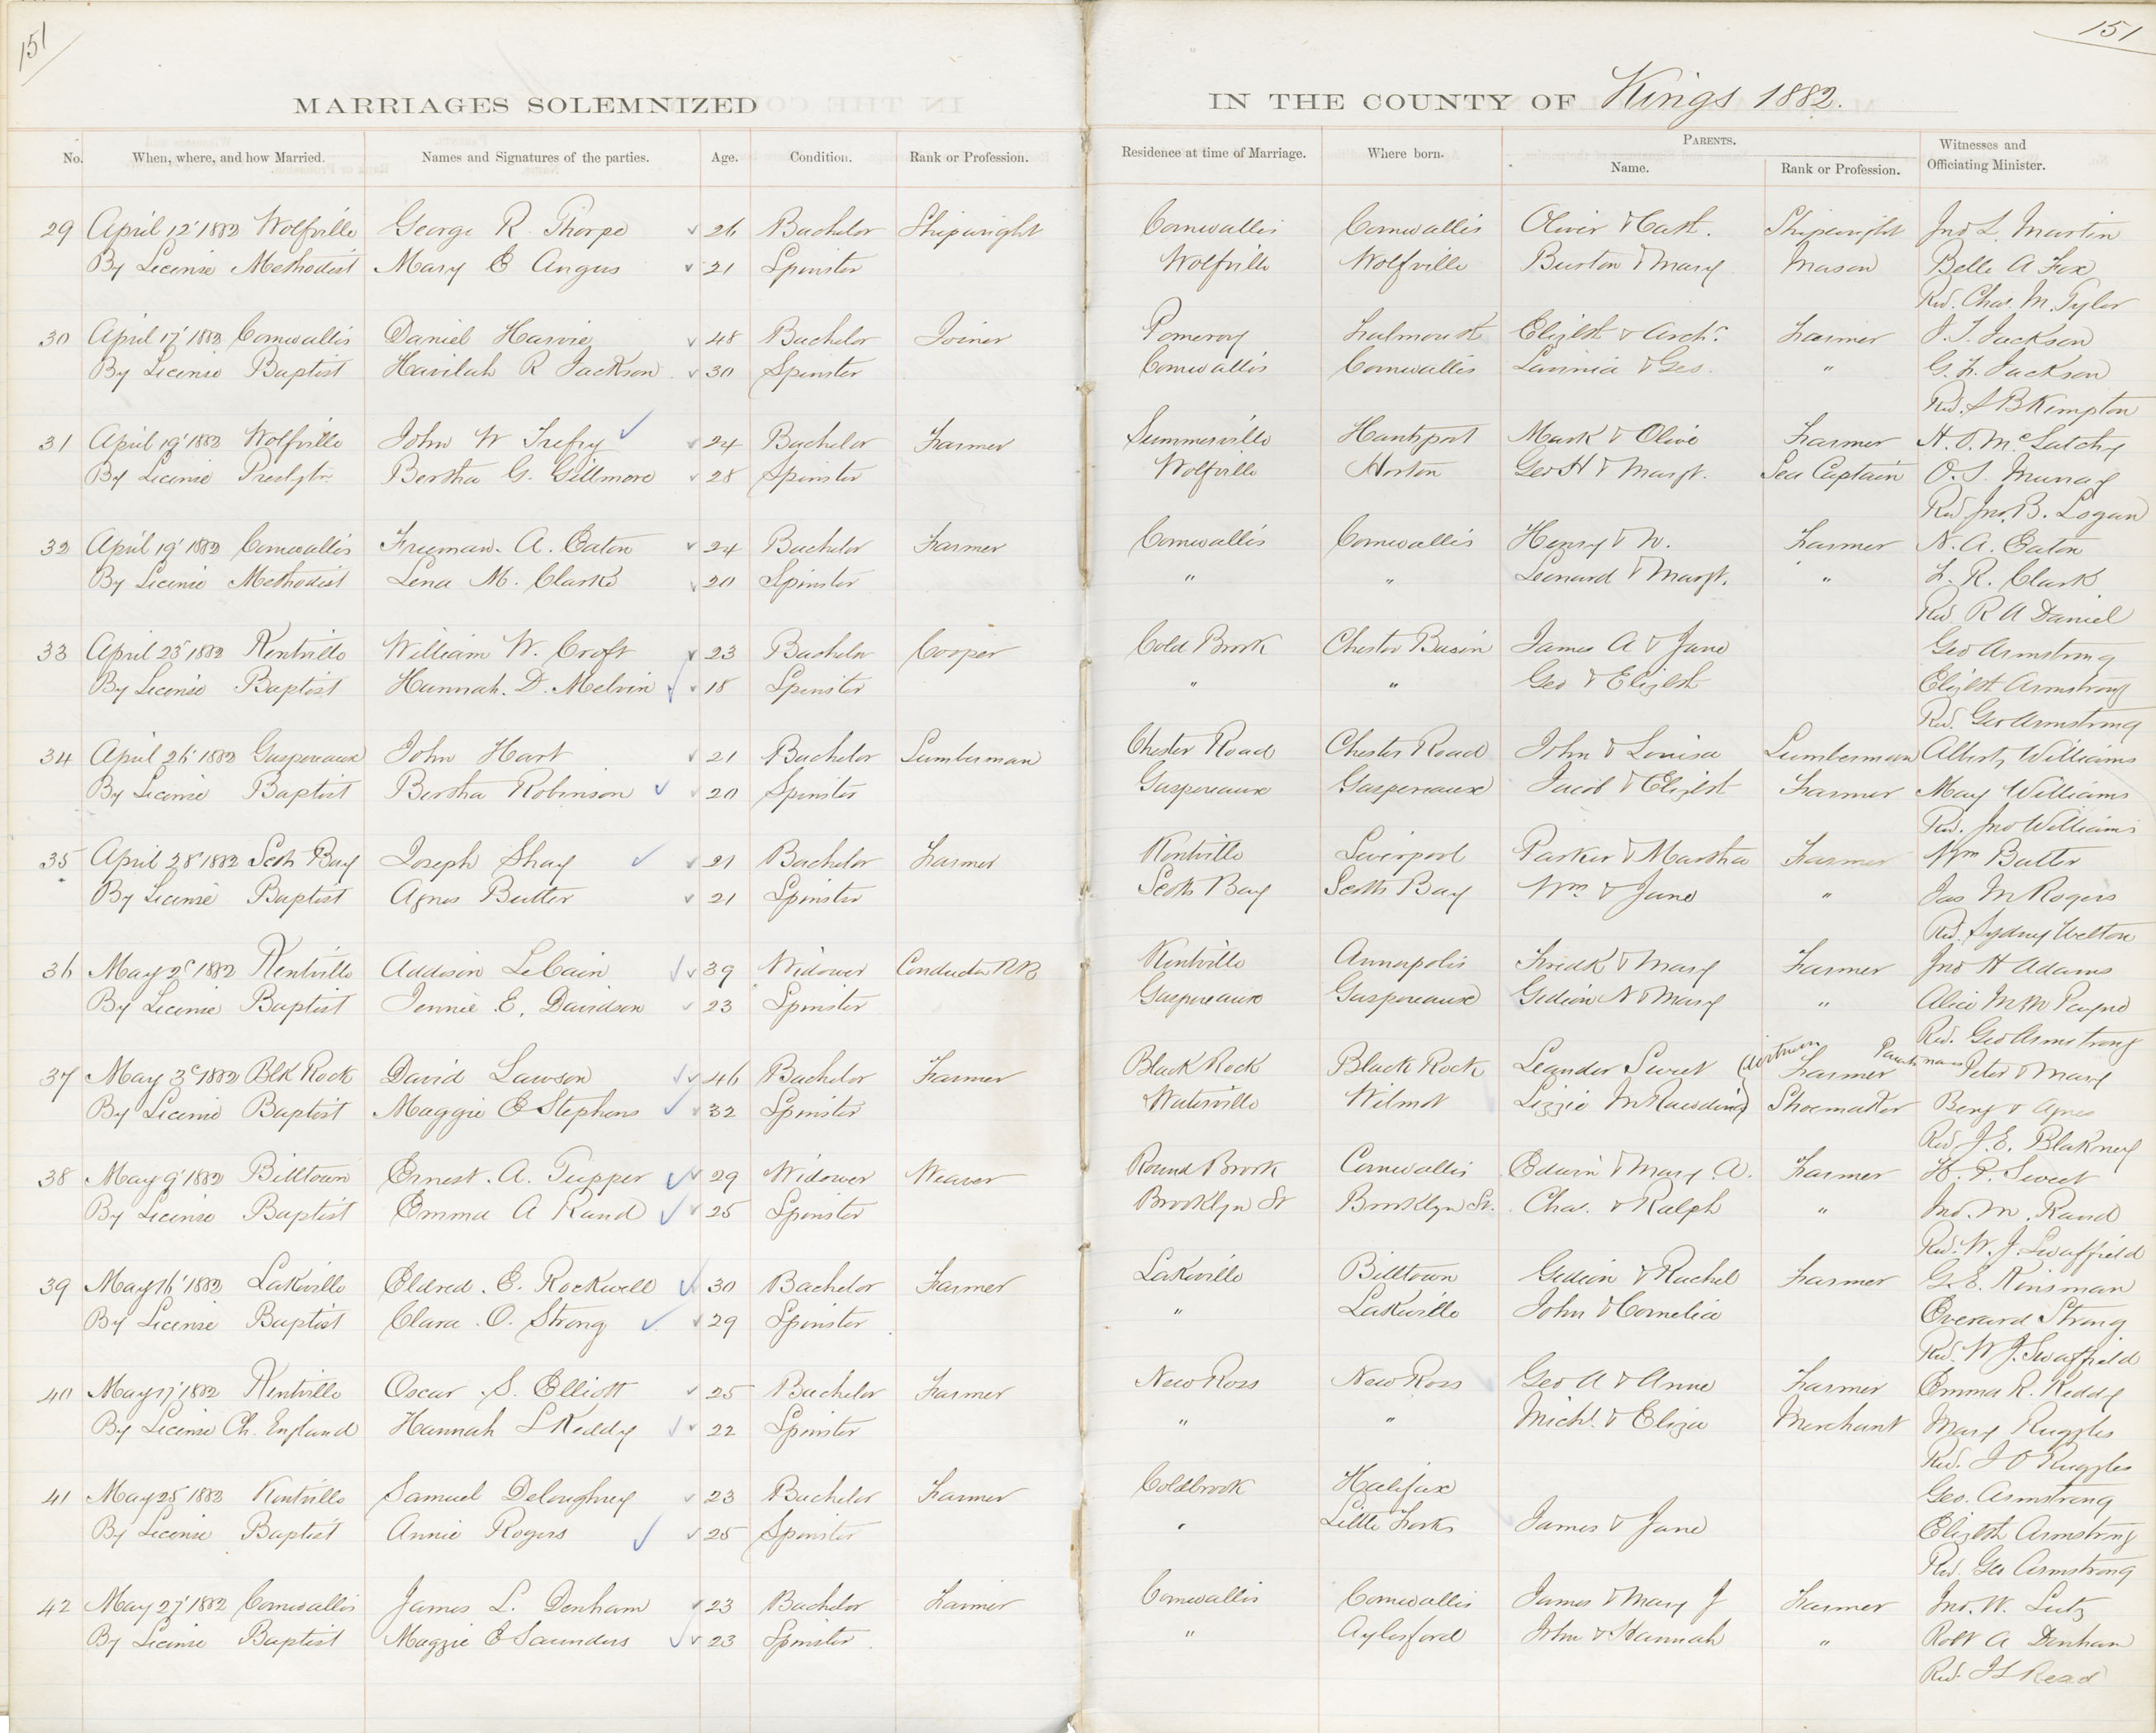 151
151
MARRIAGES SOLEMNIZED
IN THE COUNTY OF Kings 1882.
No. When, where, and how Married. Names and Signatures of the parties. Age. Condition. Rank or Profession. Residence at time of Marriage. Where born. PARENTS. Name. Rank or Profession. Witnesses and Officiating Minister.
29 April 12' 1882 Wolfville George R Thorpe 26 Bachelor Shipwright Cornwallis Cornwallis Oliver & Cath. Shipwright Jno L. Martin
By License Methodist Mary E Angus 21 Spinster Wolfville Wolfville Burton & Mary Mason Belle A Fox
Rev. Chas. M. Tyler
30 April 17' 1882 Cornwallis Daniel Harvie 48 Bachelor Joiner Pomeroy Falmouth Elizbt & Archd. Farmer J. T. Jackson
By License Baptist Havilah R Jackson 30 Spinster Cornwallis Cornwallis Lavinia & Geo. " G. F. Jackson
Rev. S B Kempton
31 April 19' 1882 Wolfville John W Trefry 24 Bachelor Farmer Summerville Hantsport Mark & Olive Farmer H. O. McLatchy
By License Presbytn. Bertha G. Gillmore 28 Spinster Wolfville Horton Geo H & Margt. Sea Captain O. S. Murray
Rev Jno. B. Logan
32 April 19' 1882 Cornwallis Freeman. A. Eaton 24 Bachelor Farmer Cornwallis Cornwallis Henry & N. Farmer N. A. Eaton
By License Methodist Lena M. Clarke 20 Spinster " " Leonard & Margt. " F. R. Clark
Rev. R A Daniel
33 April 25' 1882 Kentville William W. Croft 23 Bachelor Cooper Cold Brook Chester Basin James A & Jane Geo Armstrong
By License Baptist Hannah. D. Melvin 18 Spinster " " Geo & Elizbt Elizbt Armstrong
Rev. Geo Armstrong
34 April 26' 1882 Gaspereaux John Hart 21 Bachelor Lumberman Chester Road Chester Road John & Louisa Lumberman Albert Williams
By License Baptist Bertha Robinson 20 Spinster Gaspereaux Gaspereaux Jacob & Elizbt Farmer May Williams
Rev. Jno Williams
35 April 28' 1882 Scots Bay Joseph Shay 21 Bachelor Farmer Kentville Liverpool Parker & Martha Farmer Wm Butler
By License Baptist Agnes Butler 21 Spinster Scotts Bay Scotts Bay Wm. & Jane " Jas M Rogers
Rev. Sydney Welton
36 May 2d 1882 Kentville Addison LeCain 39 Widower Conductor RR Kentville Annapolis Fredk & Mary Farmer Jno H Adams
By License Baptist Jennie E. Davidson 23 Spinster Gaspereaux Gaspereaux Gideon N & Mary " Alice M M Payne
Rev. Geo Armstrong
37 May 3d 1882 Blk Rock David Lawson 46 Bachelor Farmer Black Rock Black Rock Leander Sweet Farmer Peter & Mary
By License Baptist Maggie E Stephens 32 Spinster Waterville Wilmot Lizzie M Rawding) Shoemaker Benj & Agnes
Rev J. E. Blakney
38 May 9' 1882 Billtown Ernest. A. Tupper 29 Widower Weaver Round Brook Cornwallis Edwin & Mary A. Farmer H. P. Sweet
By License Baptist Emma A Rand 25 Spinster Brooklyn St Brooklyn St. Chas. & Ralph " Jno. M. Rand
Rev. W. J. Swaffield
39 May 16' 1882 Lakeville Eldred. E. Rockwell 30 Bachelor Farmer Lakeville Billtown Gideon & Rachel Farmer G. E. Kinsman
By License Baptist Clara. O. Strong 29 Spinster " Lakeville John & Cornelia Everard Strong
Rev. W J. Swaffield
40 May 17' 1882 Kentville Oscar. S. Elliott 25 Bachelor Farmer New Ross New Ross Geo A & Anne Farmer Emma R. Keddy
By License Ch. England Hannah L Keddy 22 Spinster " " Michl. & Eliza Merchant Mary Ruggles
Rev. J O Ruggles
41 May 25 1882 Kentville Samuel Deloughrey 23 Bachelor Farmer Coldbrook Halifax Geo. Armstrong
By License Baptist Annie Rogers 25 Spinster " Little Forks James & Jane Elizbth Armstrong
Rev. Geo Armstrong
42 May 27' 1882 Cornwallis James L. Denham 23 Bachelor Farmer Cornwallis Cornwallis James & Mary J Farmer Jno. W. Lutz
By License Baptist Maggie E Saunders 23 Spinster " Aylesford John & Hannah " Robt A Denham
Rev. J L Read